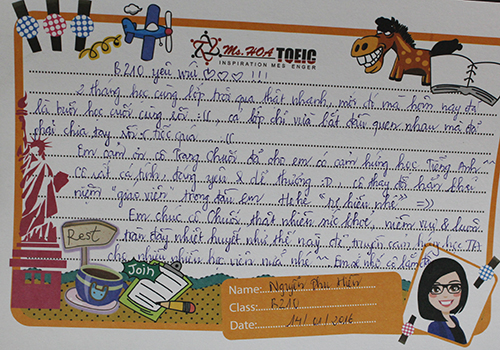 Ms. HOA TOEIC
INSPIRATION MESSENGER
B210 yêu quí ♡♡♡ !!!
2 tháng học cùng lớp trôi qua thật nhanh, mới đó mà hôm nay đã
là buổi học cuối cùng rồi :((, cả lớp chỉ vừa bắt đầu quen nhau mà đã
phải chia tay rồi
Em cảm ơn cô Trang Chuối đã cho em có cảm hứng học Tiếng Anh ^^
Cô rất cá tính, đáng yêu & dễ thương :D , cô thay đổi hẳn khái
niệm "giáo viên" trong đầu em. Hehe =))
Em chúc cô Chuối thật nhiều sức khỏe, niềm vui & luôn
tràn đầy nhiệt huyết như thế này để truyền cảm hứng học TA
cho nhiều nhiều học viên nữa nhé ^^ Em sẽ nhớ cô lắm
Rest
Join
Name: Nguyễn Thu Hiền
Class: B210
Date: 14/01/2016